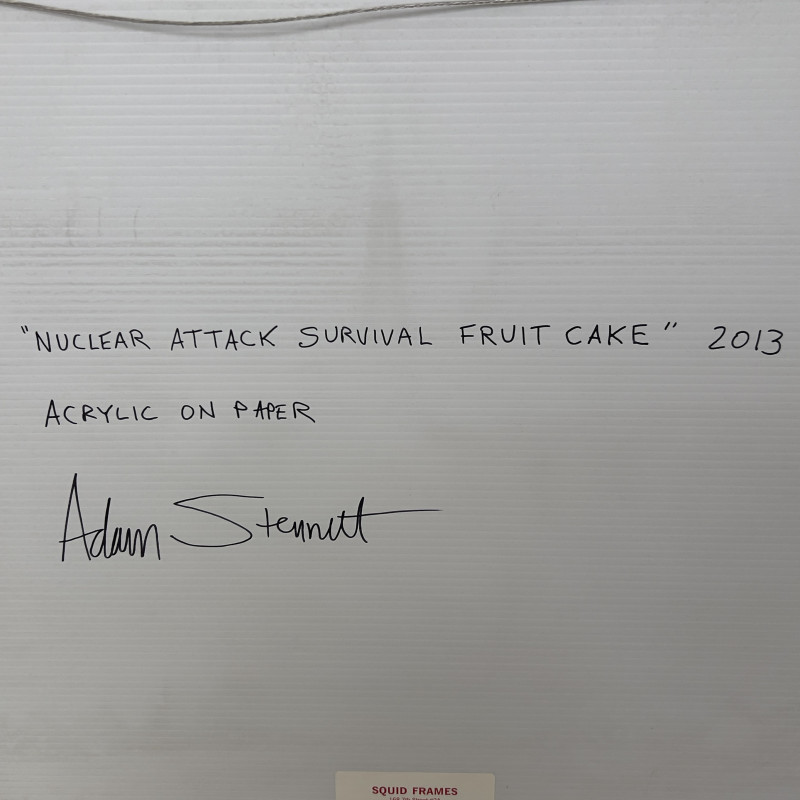 "NUCLEAR ATTACK SURVIVAL FRUIT CAKE" 2013
ACRYLIC ON PAPER
Adam Stennett
SQUID FRAMES